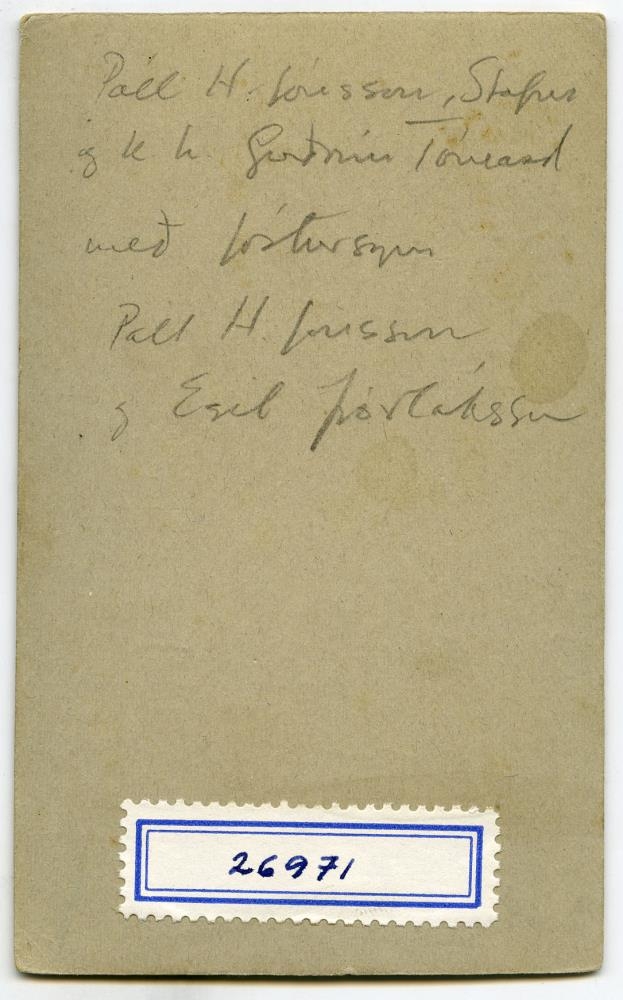 Páll H. Jónsson, Stafni
og k h. Guðrún Tómasd
með fóstursyni
Páll H. Jónsson
og Egil Þorláksson
26971